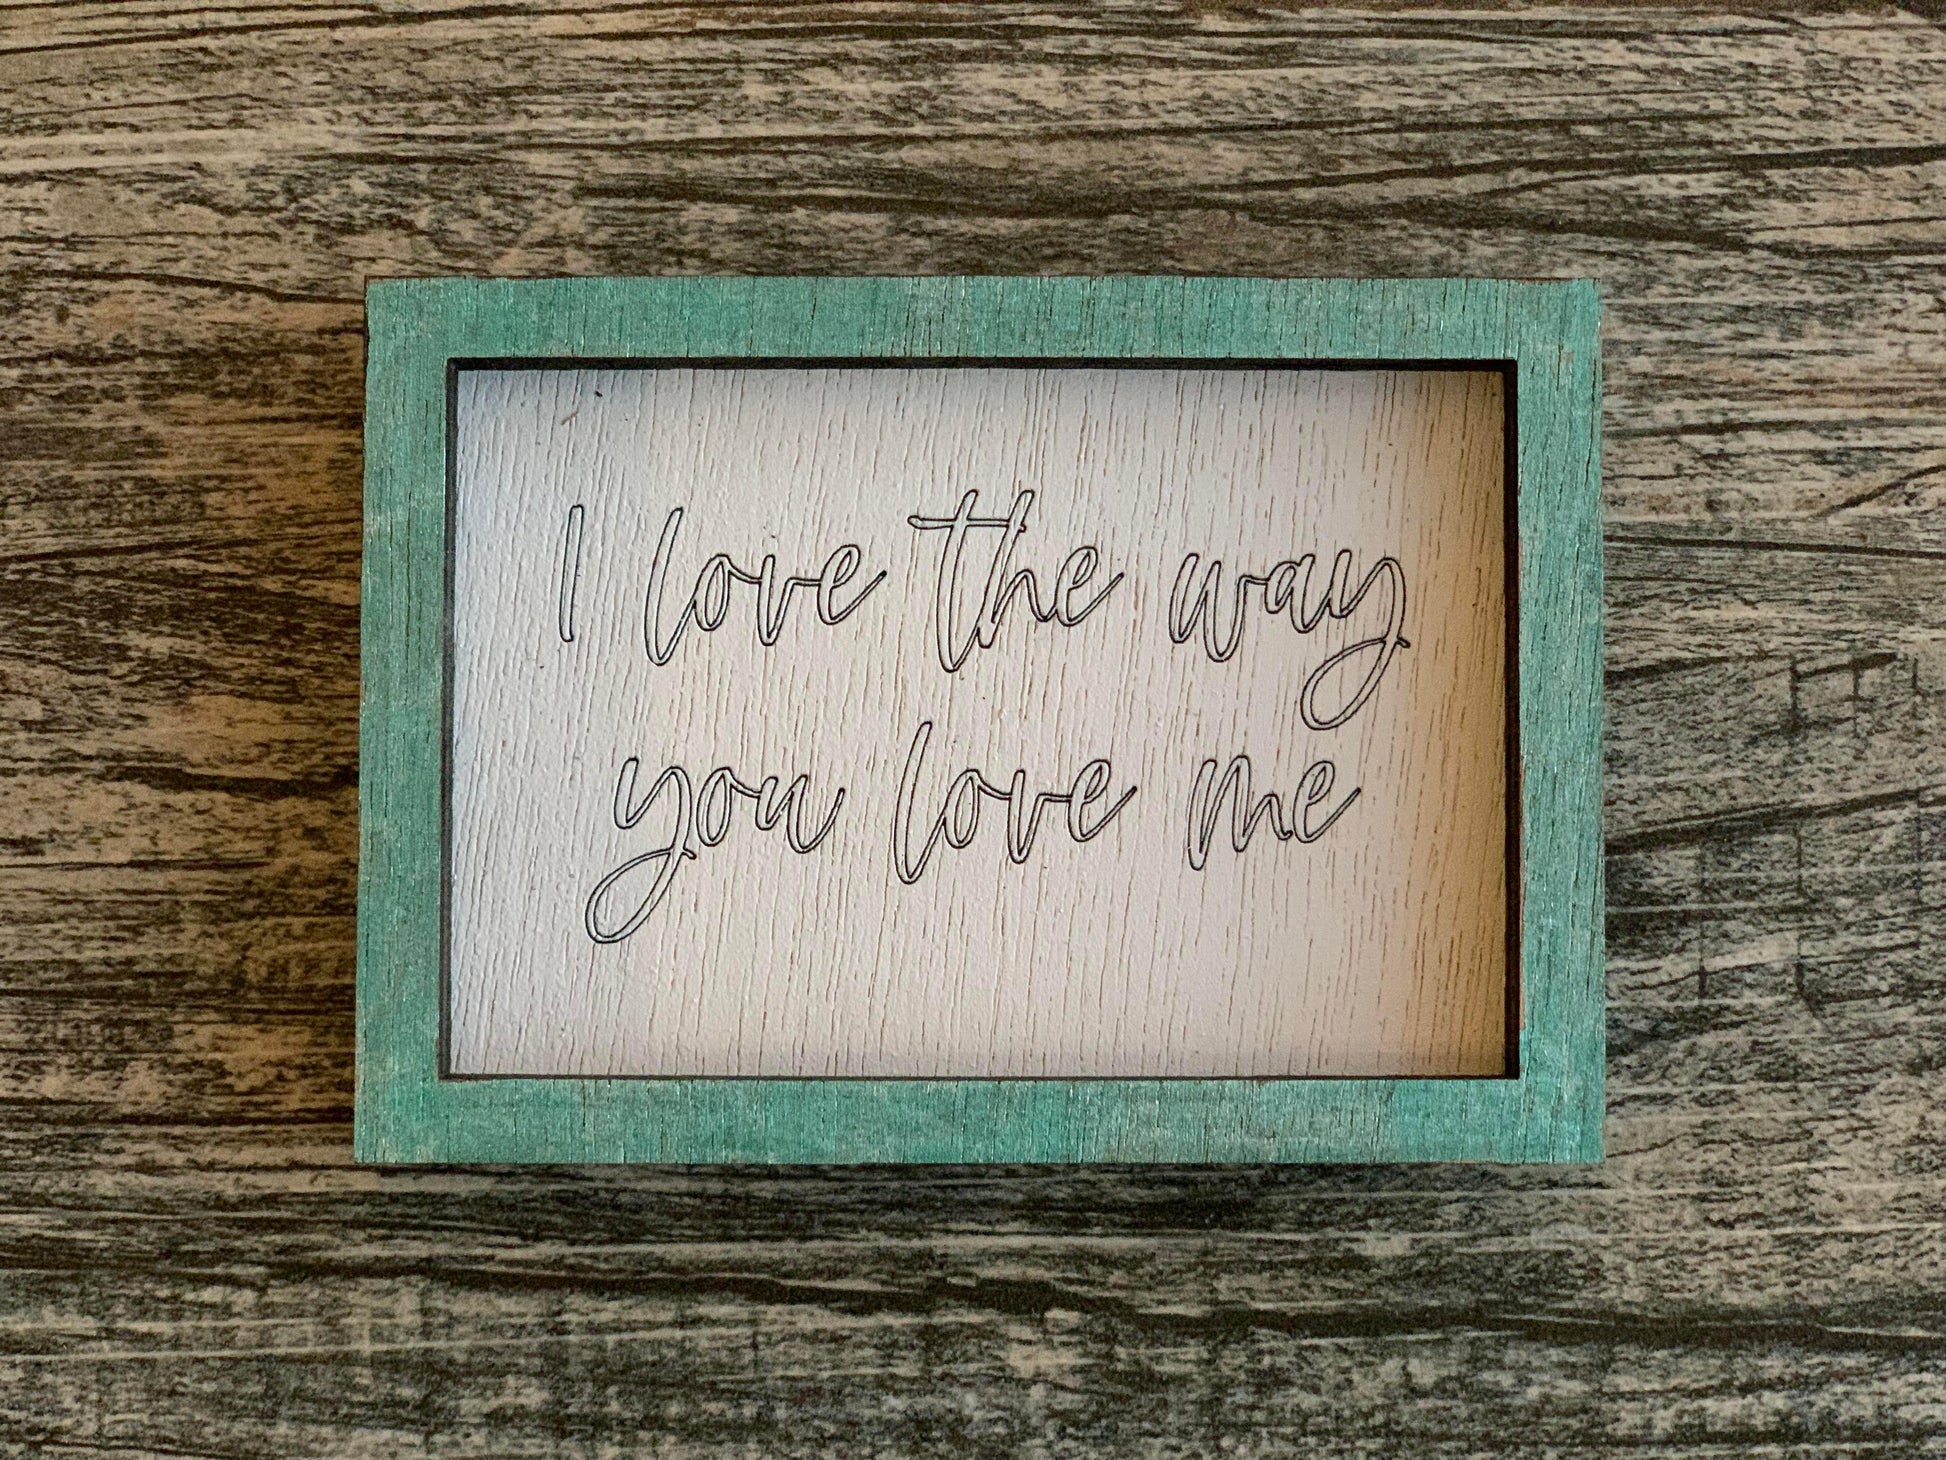 I love the way
you love me